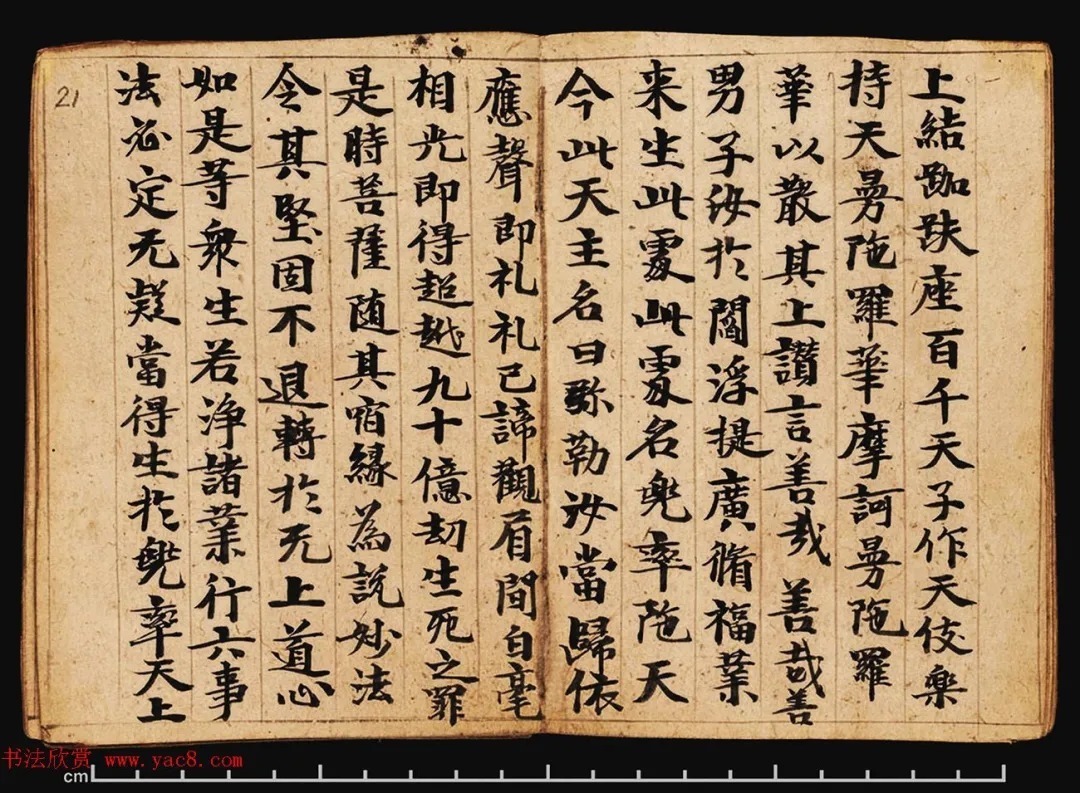 上結跏趺座百千天子作天伎樂
持天曼陁羅華摩訶曼陁羅
華以散其上讃言善哉善哉善
男子汝扵閻浮提廣脩福業
来生此處此處名兠率陁天
今此天主名曰弥勒汝當歸依
應聲即礼礼已諦觀眉間白毫
相光即得超越九十億劫生死之罪
是時菩薩随其宿緣為說妙法
令其堅固不退轉扵无上道心
如是等衆生若淨諸業行六事
法必定无疑當得生扵兠率天上
21
书法欣赏 www.yac8.com
cm